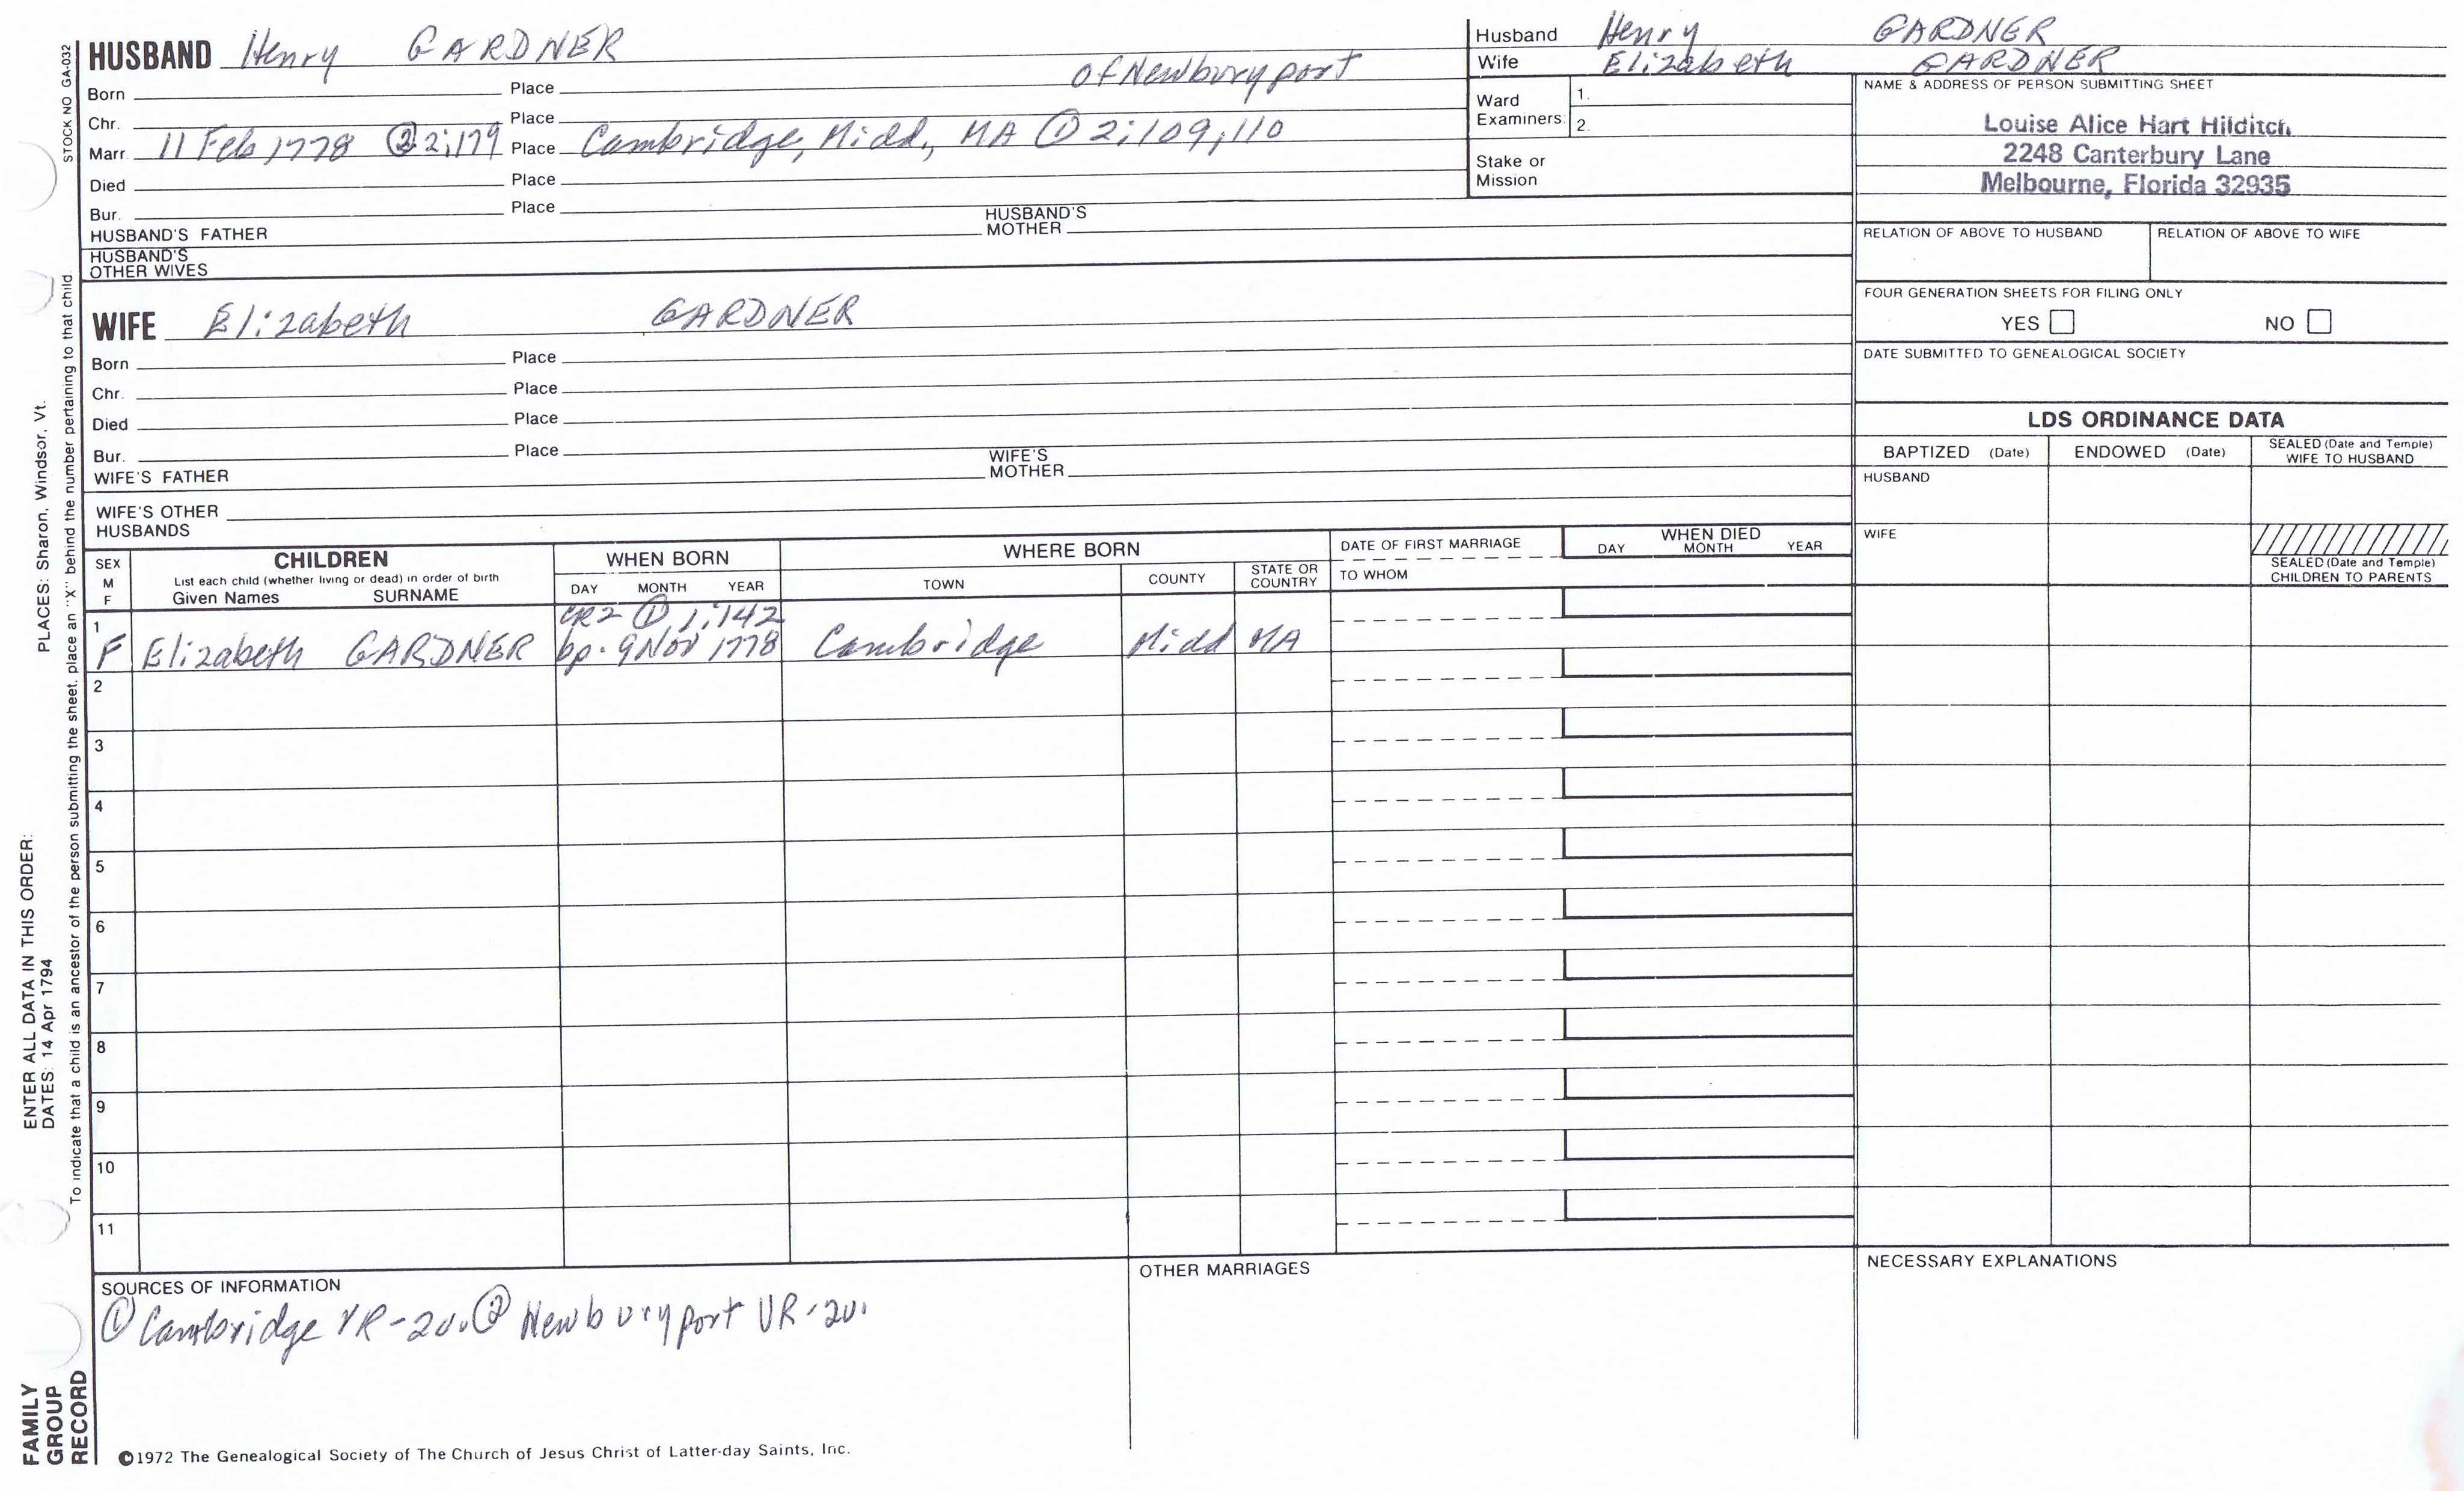 HUSBAND Henry GARDNER
Born Place of Newburyport
Chr. Place
Marr. 11 Feb 1778 ② 2;179 Place Cambridge, Midd., MA ① 2;109,110
Died Place
Bur. Place
HUSBAND'S FATHER HUSBAND'S MOTHER
HUSBAND'S OTHER WIVES
Husband Henry GARDNER
Wife Elizabeth GARDNER
Ward Examiners: 1.
2.
Stake or Mission
NAME & ADDRESS OF PERSON SUBMITTING SHEET
Louise Alice Hart Hilditch
2248 Canterbury Lane
Melbourne, Florida 32935
RELATION OF ABOVE TO HUSBAND RELATION OF ABOVE TO WIFE
FOUR GENERATION SHEETS FOR FILING ONLY
YES NO
DATE SUBMITTED TO GENEALOGICAL SOCIETY
WIFE Elizabeth GARDNER
Born Place
Chr. Place
Died Place
Bur. Place
WIFE'S FATHER WIFE'S MOTHER
WIFE'S OTHER HUSBANDS
LDS ORDINANCE DATA
BAPTIZED (Date) ENDOWED (Date) SEALED (Date and Temple) WIFE TO HUSBAND
HUSBAND
WIFE
SEALED (Date and Temple) CHILDREN TO PARENTS
SEX M F
CHILDREN
List each child (whether living or dead) in order of birth
Given Names SURNAME
WHEN BORN
DAY MONTH YEAR
WHERE BORN
TOWN COUNTY STATE OR COUNTRY
DATE OF FIRST MARRIAGE
TO WHOM
WHEN DIED
DAY MONTH YEAR
1 CR2 ① 1;142
F Elizabeth GARDNER bp. 9 Nov 1778 Cambridge Midd MA
2
3
4
5
6
7
8
9
10
11
SOURCES OF INFORMATION
① Cambridge VR-2v. ② Newburyport VR-2v.
OTHER MARRIAGES
NECESSARY EXPLANATIONS
©1972 The Genealogical Society of The Church of Jesus Christ of Latter-day Saints, Inc.
STOCK NO GA-032
ENTER ALL DATA IN THIS ORDER:
DATES: 14 Apr 1794 PLACES: Sharon, Windsor, Vt.
To indicate that a child is an ancestor of the person submitting the sheet, place an "X" behind the number pertaining to that child
FAMILY
GROUP
RECORD